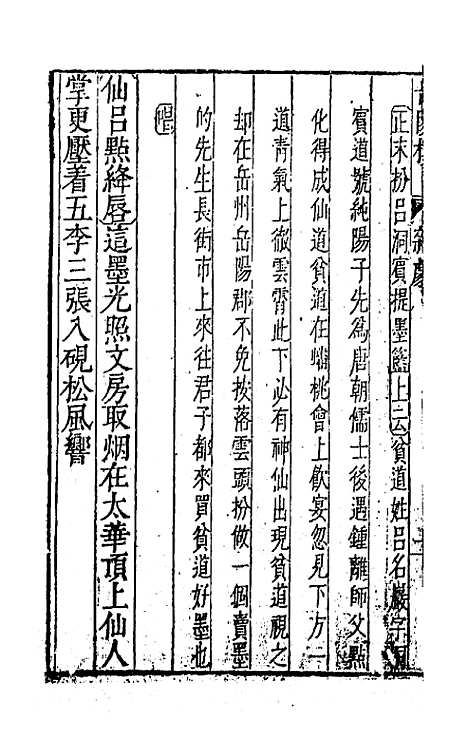 正末扮呂洞賓提墨籃上云貧道姓呂名巖字洞
賓道號純陽子先為唐朝儒士後遇鍾離師父點
化得成仙道貧道在蟠桃會上飲宴忽見下方一
道青氣上徹雲霄此下必有神仙出現貧道視之
却在岳州岳陽郡不免按落雲頭扮做一個賣墨
的先生長街市上來往君子都來買貧道好墨也
仙呂點絳唇這墨光照文房取烟在太華頂上仙人
掌更壓着五李三張入硯松風響